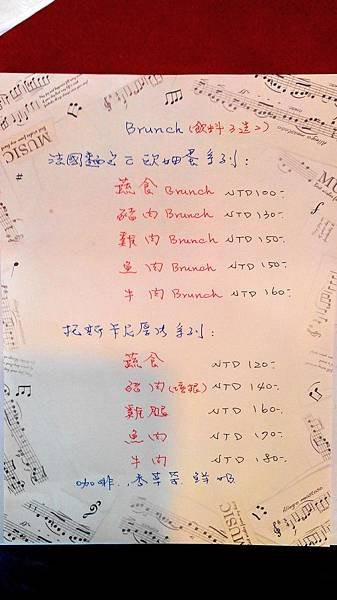 Brunch (飲料3選2)
法國麵包 歐姆蛋系列:
蔬食 Brunch NTD 100-
豬肉 Brunch NTD 130-
雞肉 Brunch NTD 150-
魚肉 Brunch NTD 150-
牛肉 Brunch NTD 160-
托斯卡尼厚片系列:
蔬食 NTD 120-
豬肉 NTD 140-
雞腿 NTD 160-
魚肉 NTD 170-
牛肉 NTD 180-
咖啡、香草茶、鮮奶
MUSIC
MUSIC